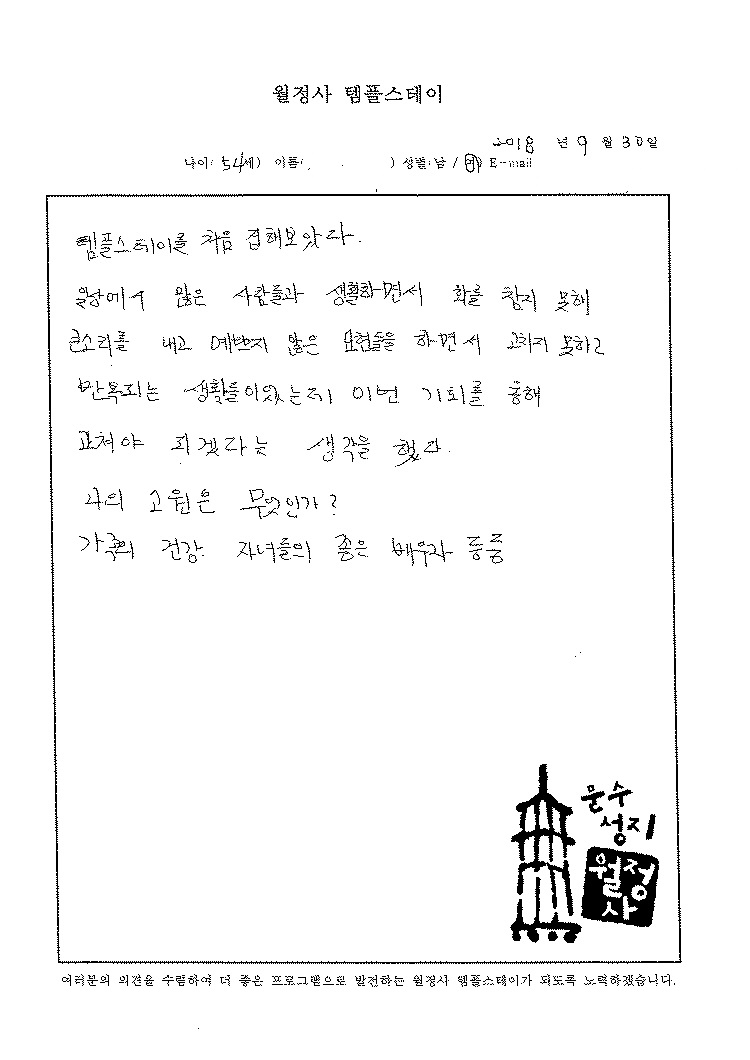 월정사 템플스테이
2018 년 9 월 30일
나이( 54세) 이름( ) 성별:남 / 여 E-mail
템플스테이를 처음 접해보았다.
일상에서 많은 사람들과 생활하면서 화를 참지 못해
큰소리를 내고 예쁘지 않은 표현들을 하면서 고치지 못하고
반복되는 생활을이었는데 이번 기회를 통해
고쳐야 되겠다는 생각을 했다.
나의 소원은 무엇인가?
가족의 건강. 자녀들의 좋은 배우자 등등
문수
성지
월정
사
여러분의 의견을 수렴하여 더 좋은 프로그램으로 발전하는 월정사 템플스테이가 되도록 노력하겠습니다.